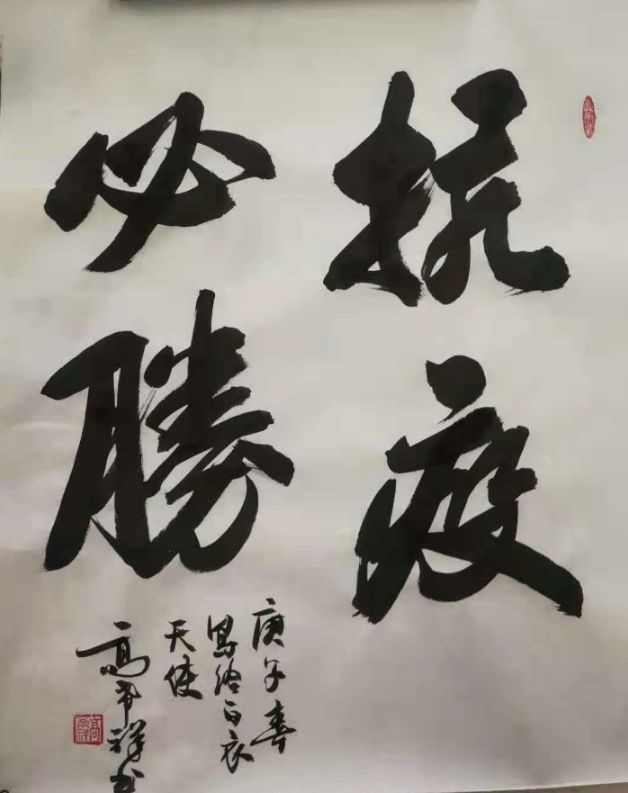 抗疫
必勝
庚子春
寫给白衣
天使
高希祥书